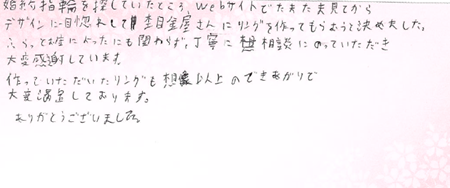 婚約指輪を探していたところ、Webサイトでたまたま見てから
デザインに一目惚れして杢目金屋さんにリングを作ってもらおうと決めました。
ふらっとお店に入ったにも関わらず、丁寧に相談にのっていただき
大変感謝しています。
作っていただいたリングも想像以上のできあがりで
大変満足しております。
ありがとうございました。